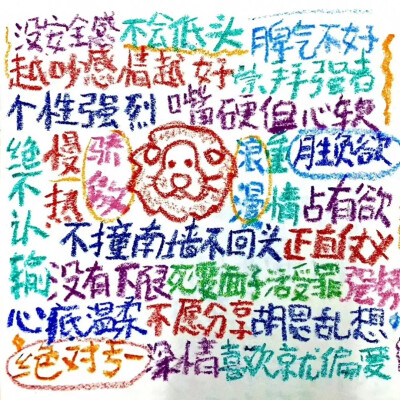 没安全感 不会低头 脾气不好
越吵感情越好 崇拜强者
个性强烈 嘴硬但心软
绝不认输
慢热
骄傲
浪漫
重情
胜负欲
占有欲
不撞南墙不回头 正直仗义
没有下限 死要面子活受罪 强势
心低温柔 不愿分享 胡思乱想
绝对专一 深情 喜欢就偏爱